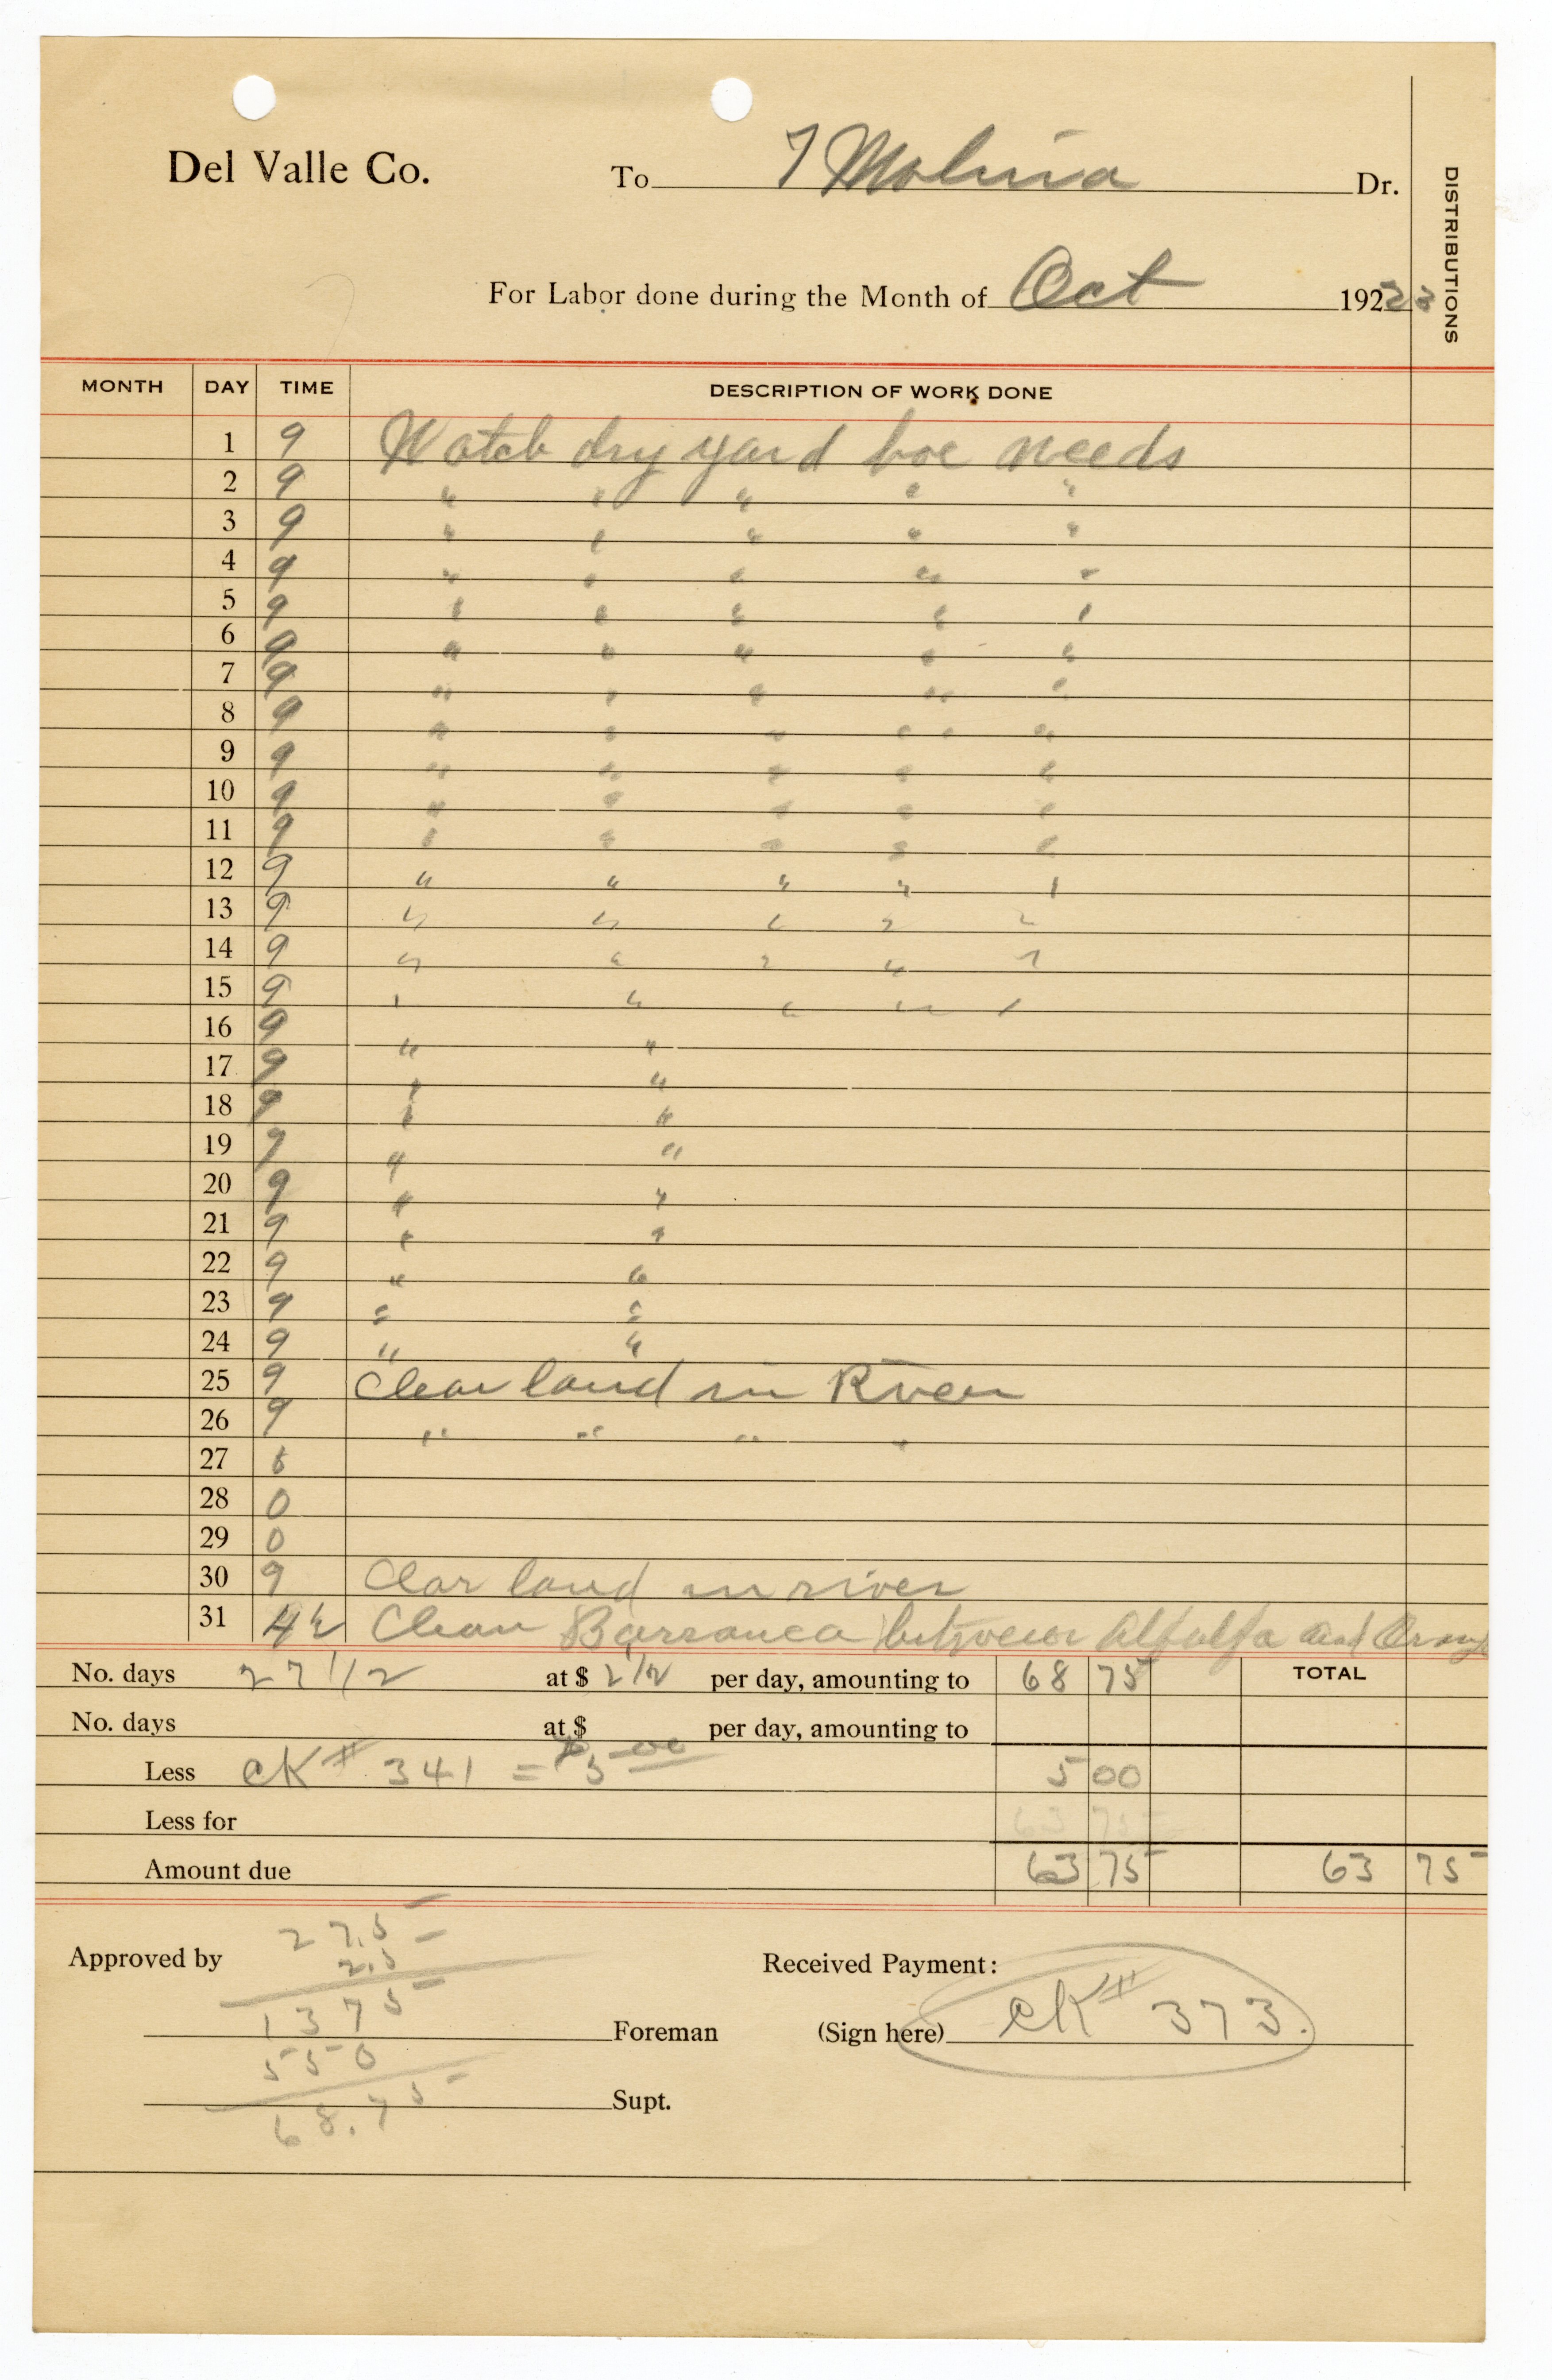 Del Valle Co. To T Molina Dr.
DISTRIBUTIONS
For Labor done during the Month of Oct 1923
MONTH DAY TIME DESCRIPTION OF WORK DONE
1 9 Watch dry yard hoe weeds
2 9 " " " " "
3 9 " " " " "
4 9 " " " " "
5 9 " " " " "
6 9 " " " " "
7 9 " " " " "
8 9 " " " " "
9 9 " " " " "
10 9 " " " " "
11 9 " " " " "
12 9 " " " " "
13 9 " " " " "
14 9 " " " " "
15 9 " " " " "
16 9 " "
17 9 " "
18 9 " "
19 9 " "
20 9 " "
21 9 " "
22 9 " "
23 9 " "
24 9 " "
25 9 Clear land in River
26 9 " " " "
27
28 0
29 0
30 9 Clear land in river
31 4½ Clean Barranca between Alfalfa and Orange
No. days 27 1/2 at $ 2 1/2 per day, amounting to 68 75 TOTAL
No. days at $ per day, amounting to
Less CK# 341 = $5 00 5 00
Less for 63 75
Amount due 63 75 63 75
27.5
Approved by 2.5 Received Payment:
1375
Foreman (Sign here) CK# 373.
550
Supt.
68.75